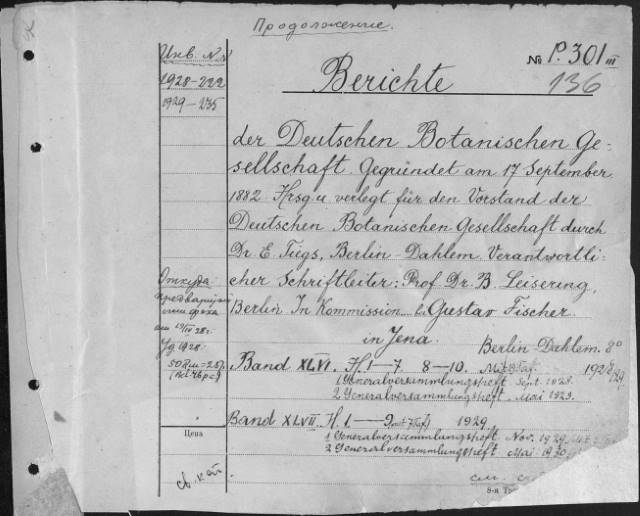 Продолжение.
Инв. №
1928-222
1929-235
№ P.301 III
136
Berichte
der Deutschen Botanischen Ge-
sellschaft. Gegründet am 17 September
1882. Hrsg. u. verlegt für den Vorstand der
Deutschen Botanischen Gesellschaft durch
Dr. E. Tiegs, Berlin-Dahlem. Verantwortli-
cher Schriftleiter: Prof. Dr. B. Leisering,
Berlin. In Kommission bei Gustav Fischer
in Jena.
Berlin-Dahlem. 8°
Откуда
50 Rm = 25 р.
Band XLVI. H. 1-7 8-10. Mit Taf. 1928/29.
1 Generalversammlungsheft Sept. 1928.
2 Generalversammlungsheft. Mai 1929.
Band XLVII H. 1-9 1929
1 Generalversammlungsheft. Nov. 1929
2 Generalversammlungsheft Mai 1930
Цена
св. кат.
см.
8-я